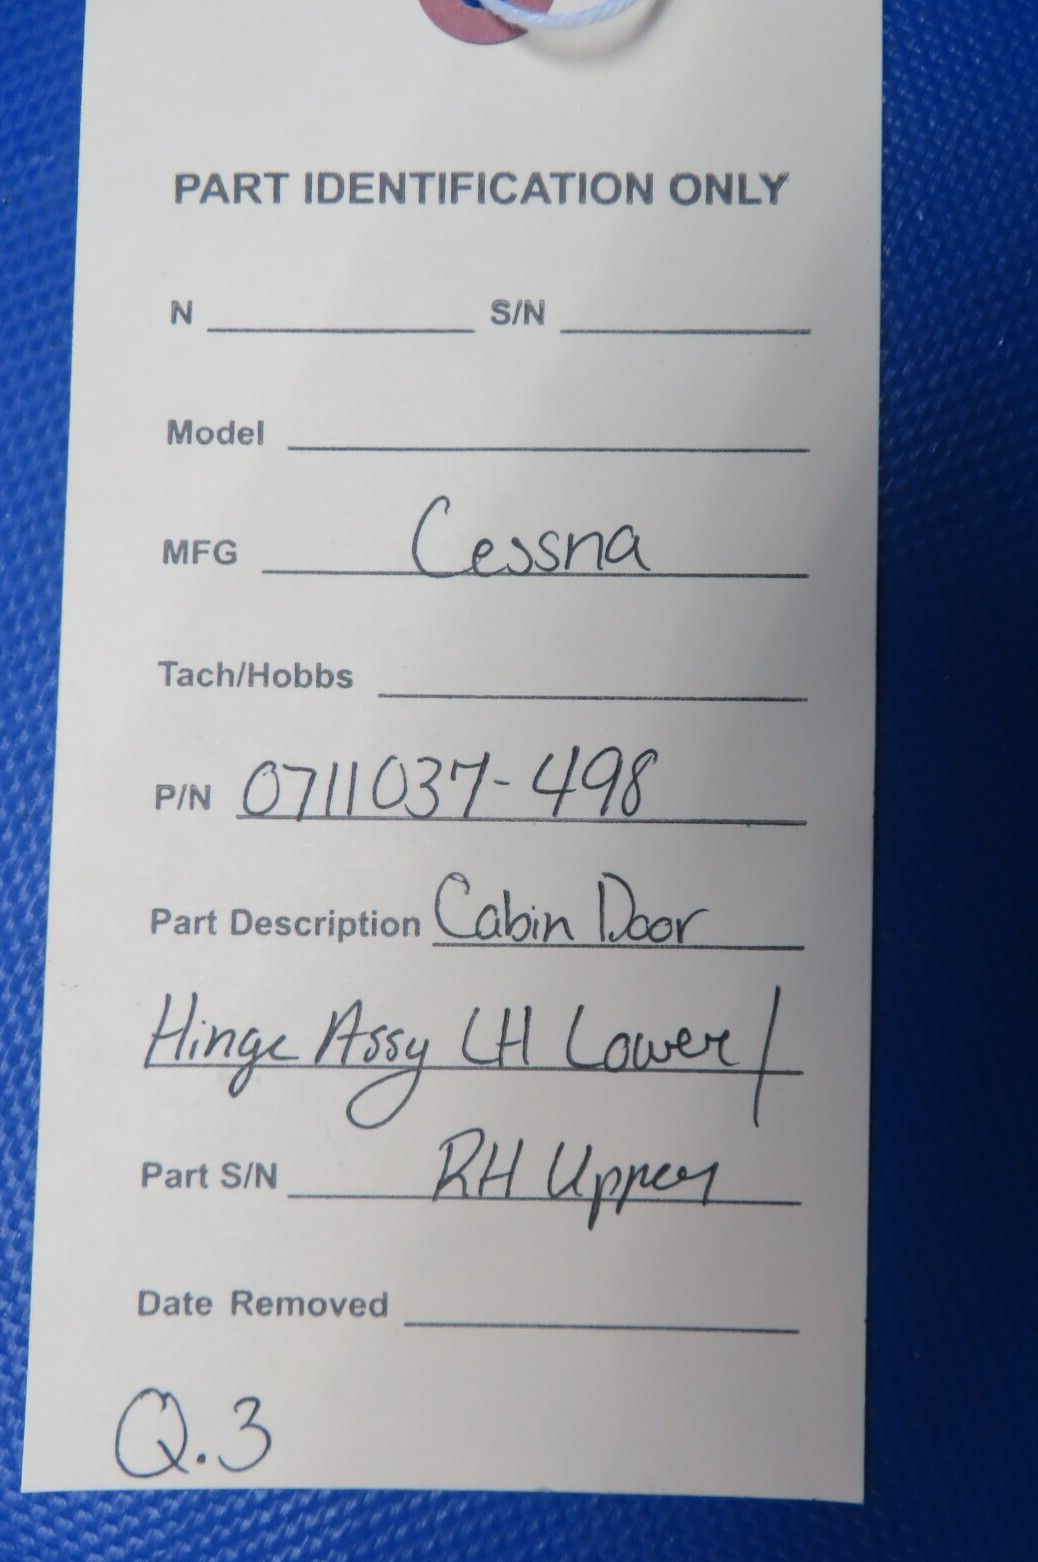 PART IDENTIFICATION ONLY
N S/N
Model
MFG Cessna
Tach/Hobbs
P/N 0711037-498
Part Description Cabin Door
Hinge Assy LH Lower/
Part S/N RH Upper
Date Removed
Q.3